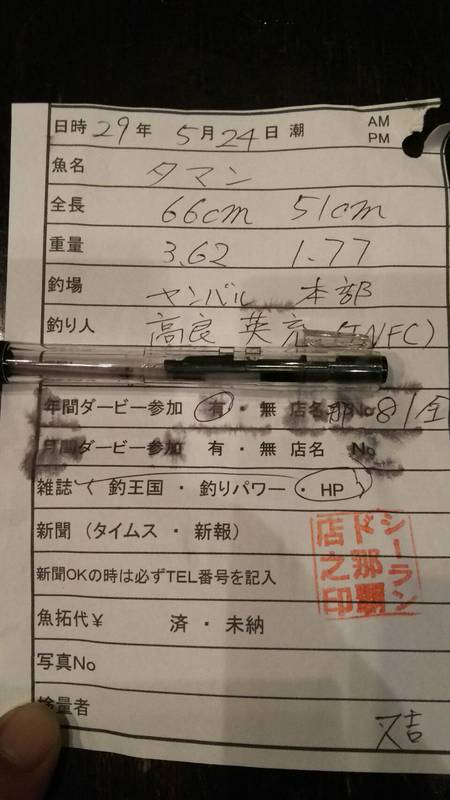 日時 29年 5月24日 潮 AM PM
魚名 タマン
全長 66cm 51cm
重量 3.62 1.77
釣場 ヤンバル 本部
釣り人 高良 英充 (TNFC)
年間ダービー参加 有・無 店名 那 No 81 全
月間ダービー参加 有・無 店名 No
雑誌 く 釣王国・釣りパワー・HP
新聞(タイムス・新報)
新聞OKの時は必ずTEL番号を記入
シーランド那覇店之印
魚拓代¥ 済・未納
写真No
検量者 又吉